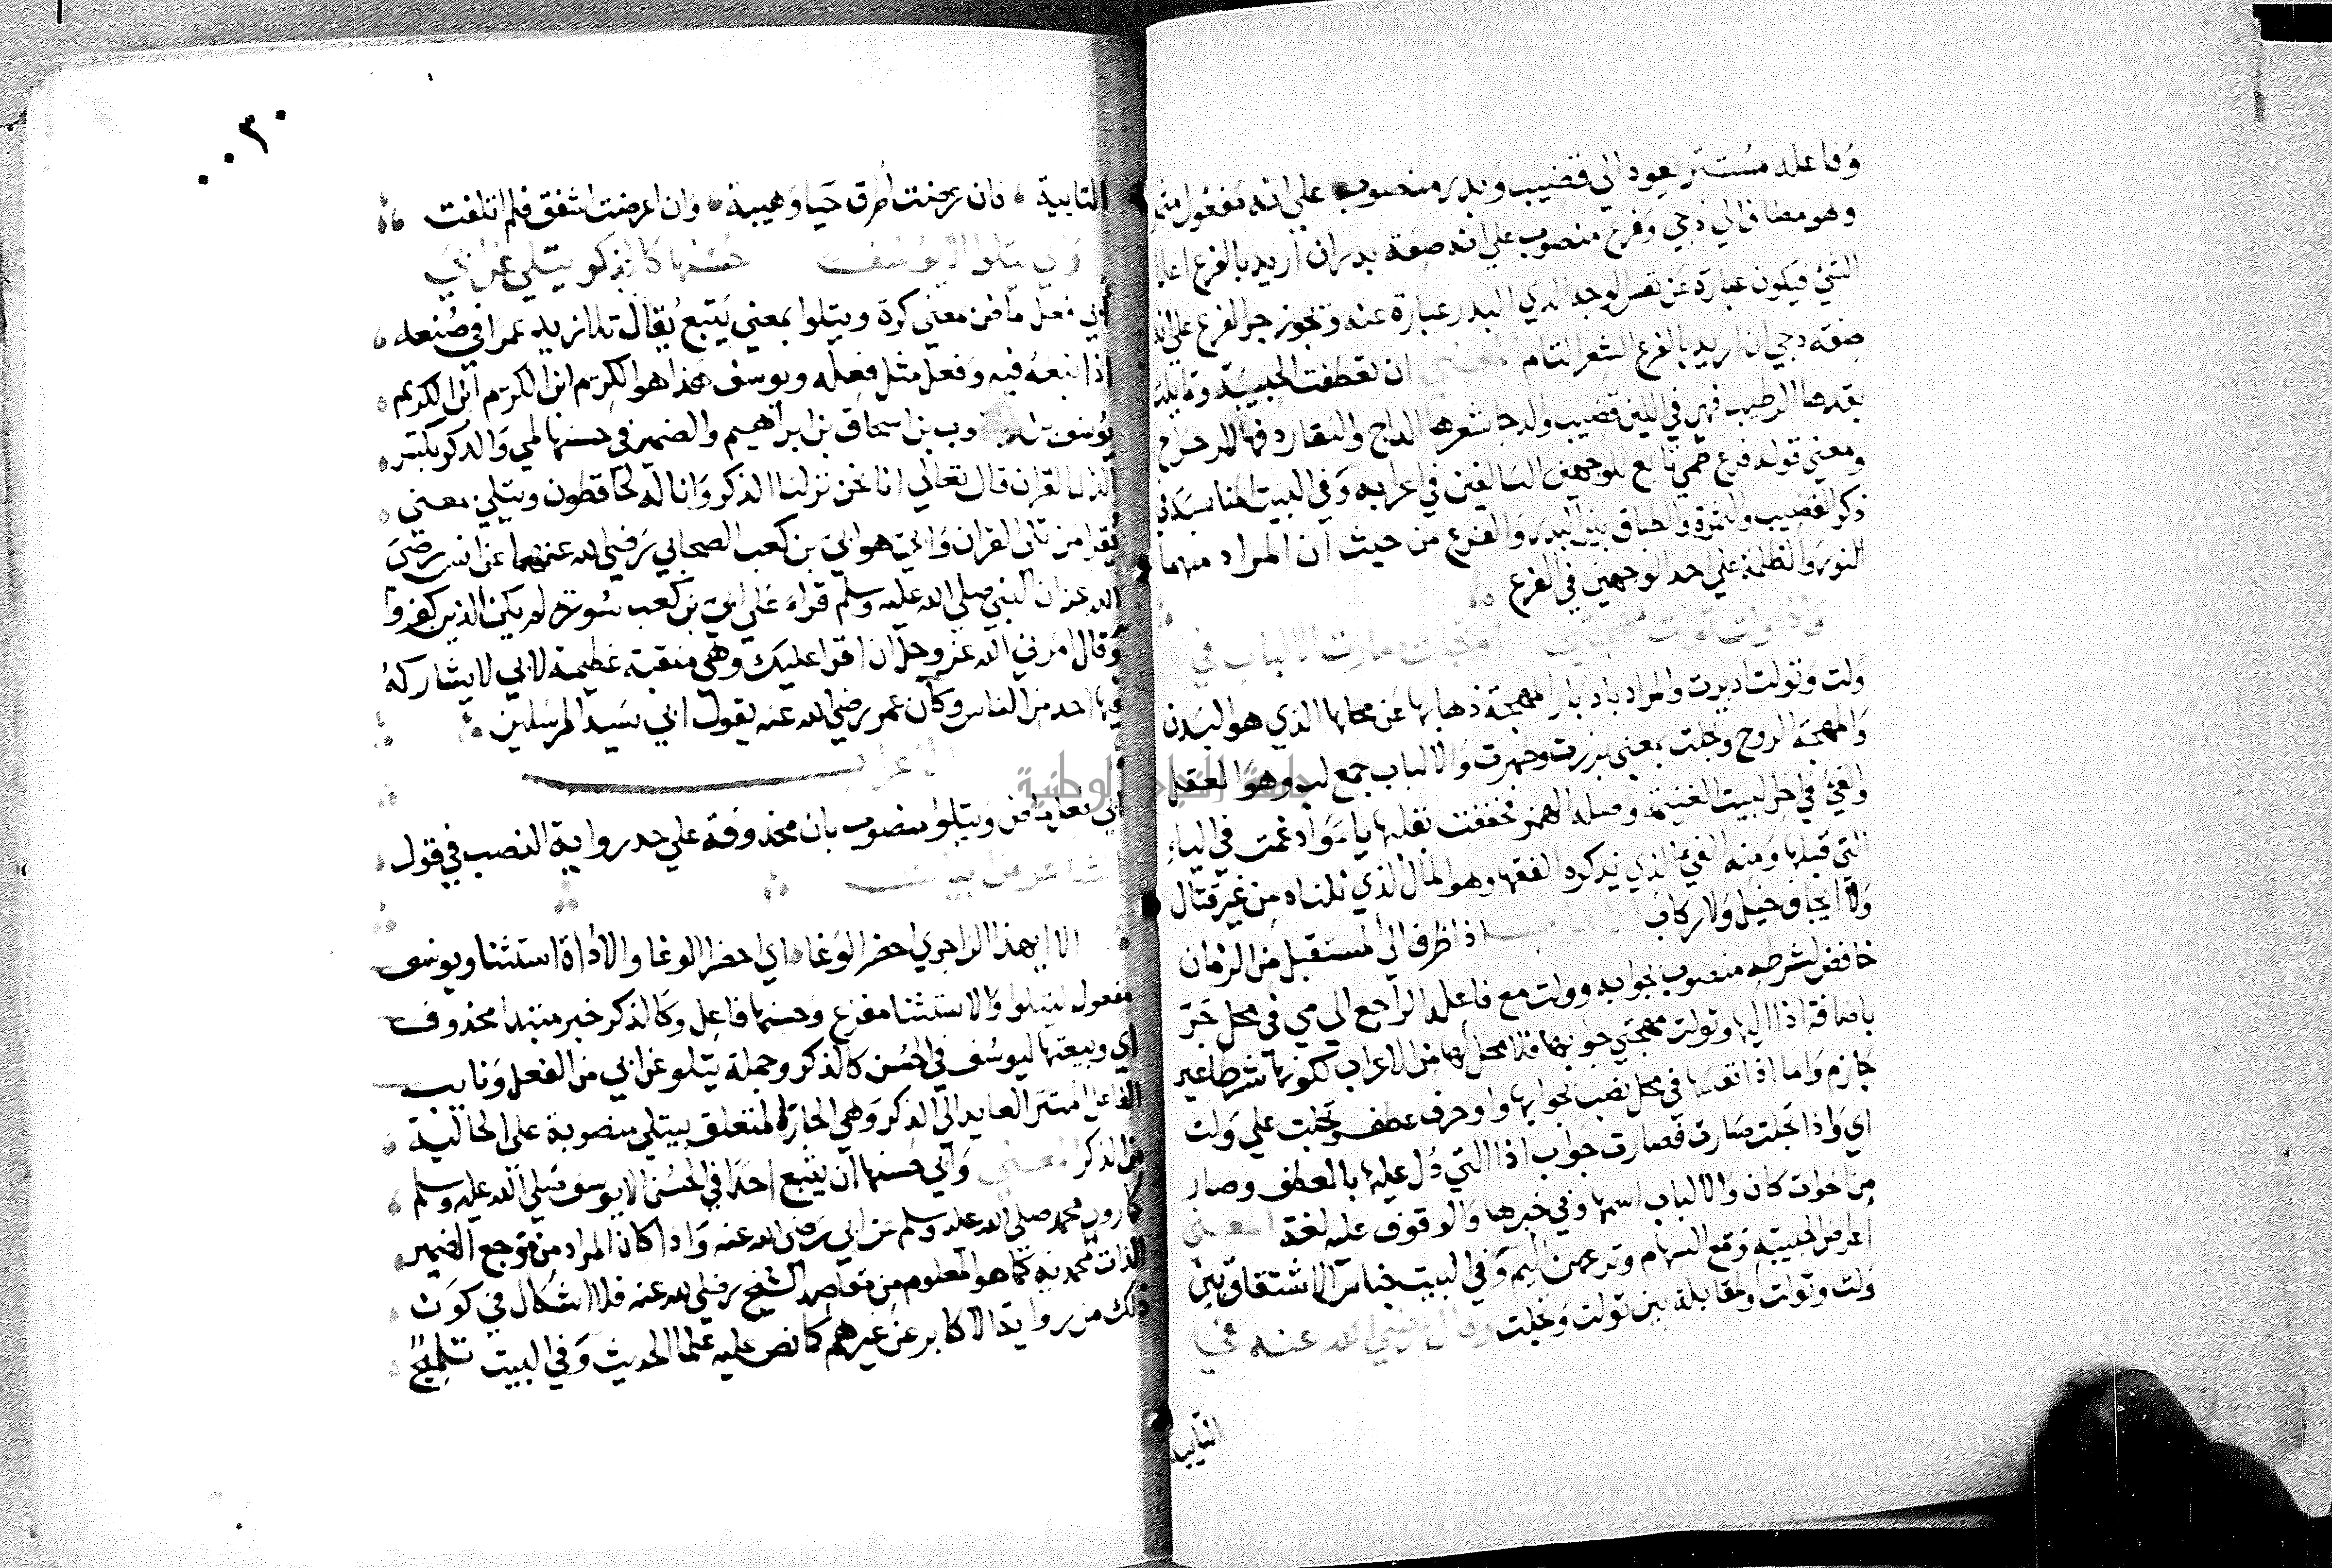 وفاعله مستتر يعود الي قضيب وبدر منصوب علي انه مفعول مثمر
وهو مضاف الي دجي وفرع منصوب علي انه صفة بدر ان اريد بالفرع اعلا
الشئ فيكون عبارة عن نفس الوجه الذي البدر عبارة عنه ويجوز جر الفرع علي انه
صفة دجي ان اريد بالفرع الشعر التام المعني ان تعطفت الحبيبة وتمايلت
بقدها الرطيب فهي في اللين قضيب والدجا شعرها الداج
ومعني قوله فرع ظمي تابع للوجهين السالفين في اعرابه وفي البيت المناسبة في
ذكر القضيب والثمرة والطباق بين البدر والفرع من حيث ان المراد منهما
النور والظلمة علي احد الوجهين في الفرع
واذا ولت تولت مهجتي او تجلت صارت الالباب في
ولت وتولت ادبرت والمراد بادبار المهجة ذهابها عن محلها الذي هو البدن
والمهجة الروح وتجلت بمعني برزت وظهرت والالباب جمع لب وهو العقل
والفئ في اخر البيت الغنيمة واصله الهمز فخففت بقلبها ياء وادغمت في الياء
التي قبلها ومنه الفئ الذي يذكره الفقها وهو المال الذي نلناه من غير قتال
ولا ايجاف خيل ولا ركاب الاعراب اذا ظرف الي المستقبل من الزمان
خافض لشرطه منصوب بجوابه وولت مع فاعله الراجع الي مي في محل جر
باضافة اذا اليها وتولت مهجتي جوابها فلا محل لها من الاعراب لكونها شرط غير
جازم واما اذا نفسها في محل نصب بجوابها واو حرف عطف وتجلت علي ولت
اي واذا تجلت صارت فصارت جواب اذا التي دل عليها بالعطف وصار
من اخوات كان والالباب اسمها وفي خبرها والوقوف عليه لغة المعني
اعراض الحبيبة وقع السهام ونزعهن اليم وفي البيت جناس الاشتقاق بين
ولت وتولت ومقابلة بين تولت وتجلت وقال رضي الله عنه في
التايية
٣٠
التايية فان عرضت اطرق حيا وهيبة وان اعرضت اشفق فلم اتلفت
وابي يتلوا الا يوسفت حسنها كالذكر يتلي عن ابي
ابي فعل ماض معني كره ويتلوا بمعني يتبع يقال تلا زيد عمرا في صنعه
اذا تبعه فيه وفعل مثل فعله ويوسف هذا هو الكريم ابن الكريم ابن الكريم
يوسف بن يعقوب بن اسحاق بن ابراهيم والضمير في حسنها لمي والذكر بكسر
الذال القران قال تعالي انا نحن نزلنا الذكر وانا له لحافظون ويتلي معني
يقرا من تلي القران وابي هو ابي بن كعب الصحابي رضي الله عنهما عن انس رضي
الله عنه ان النبي صلي الله عليه وسلم قراء علي ابي بن كعب سورة لم يكن الذين كفروا
وقال امرني الله عز وجل ان اقرا عليك وهي منقبة عظيمة لابي لا يشاركه
فيها احد من الناس وكان عمر رضي الله عنه يقول ابي سيد المرسلين
الاعراب
ابي فعل ماض ويتلوا منصوب بان محذوفة علي حد رواية النصب في قول
الشاعر من
الا ايهذا الزاجري احضر الوغا اي احضر الوغا والا اداة استثنا ويوسف
مفعول ليتلوا والاستثنا مفرغ وحسنها فاعل وكالذكر خبر مبتدا محذوف
اي وبيعتها ليوسف في الحسن كالذكر وجملة يتلو عن ابي من الفعل ونايب
الفاعل المستتر العايد الي الذكر وهي الجارة المتعلق بيتلي منصوبة علي الحالية
من الذكر المعني وابي حسنها ان يتبع احدا في الحسن الا يوسف صلي الله عليه وسلم
كما روي محمد صلي الله عليه وسلم عن ابي رضي الله عنه واذا كان المراد من مرجع الضمير
الذات المحمدية كما هو المعلوم من مقاصد الشيخ رضي الله عنه فلا اشكال في كون
ذلك من رواية الاكابر عن غيرهم كما نص عليه علما الحديث وفي البيت تلميح
جامعة النجاح الوطنية